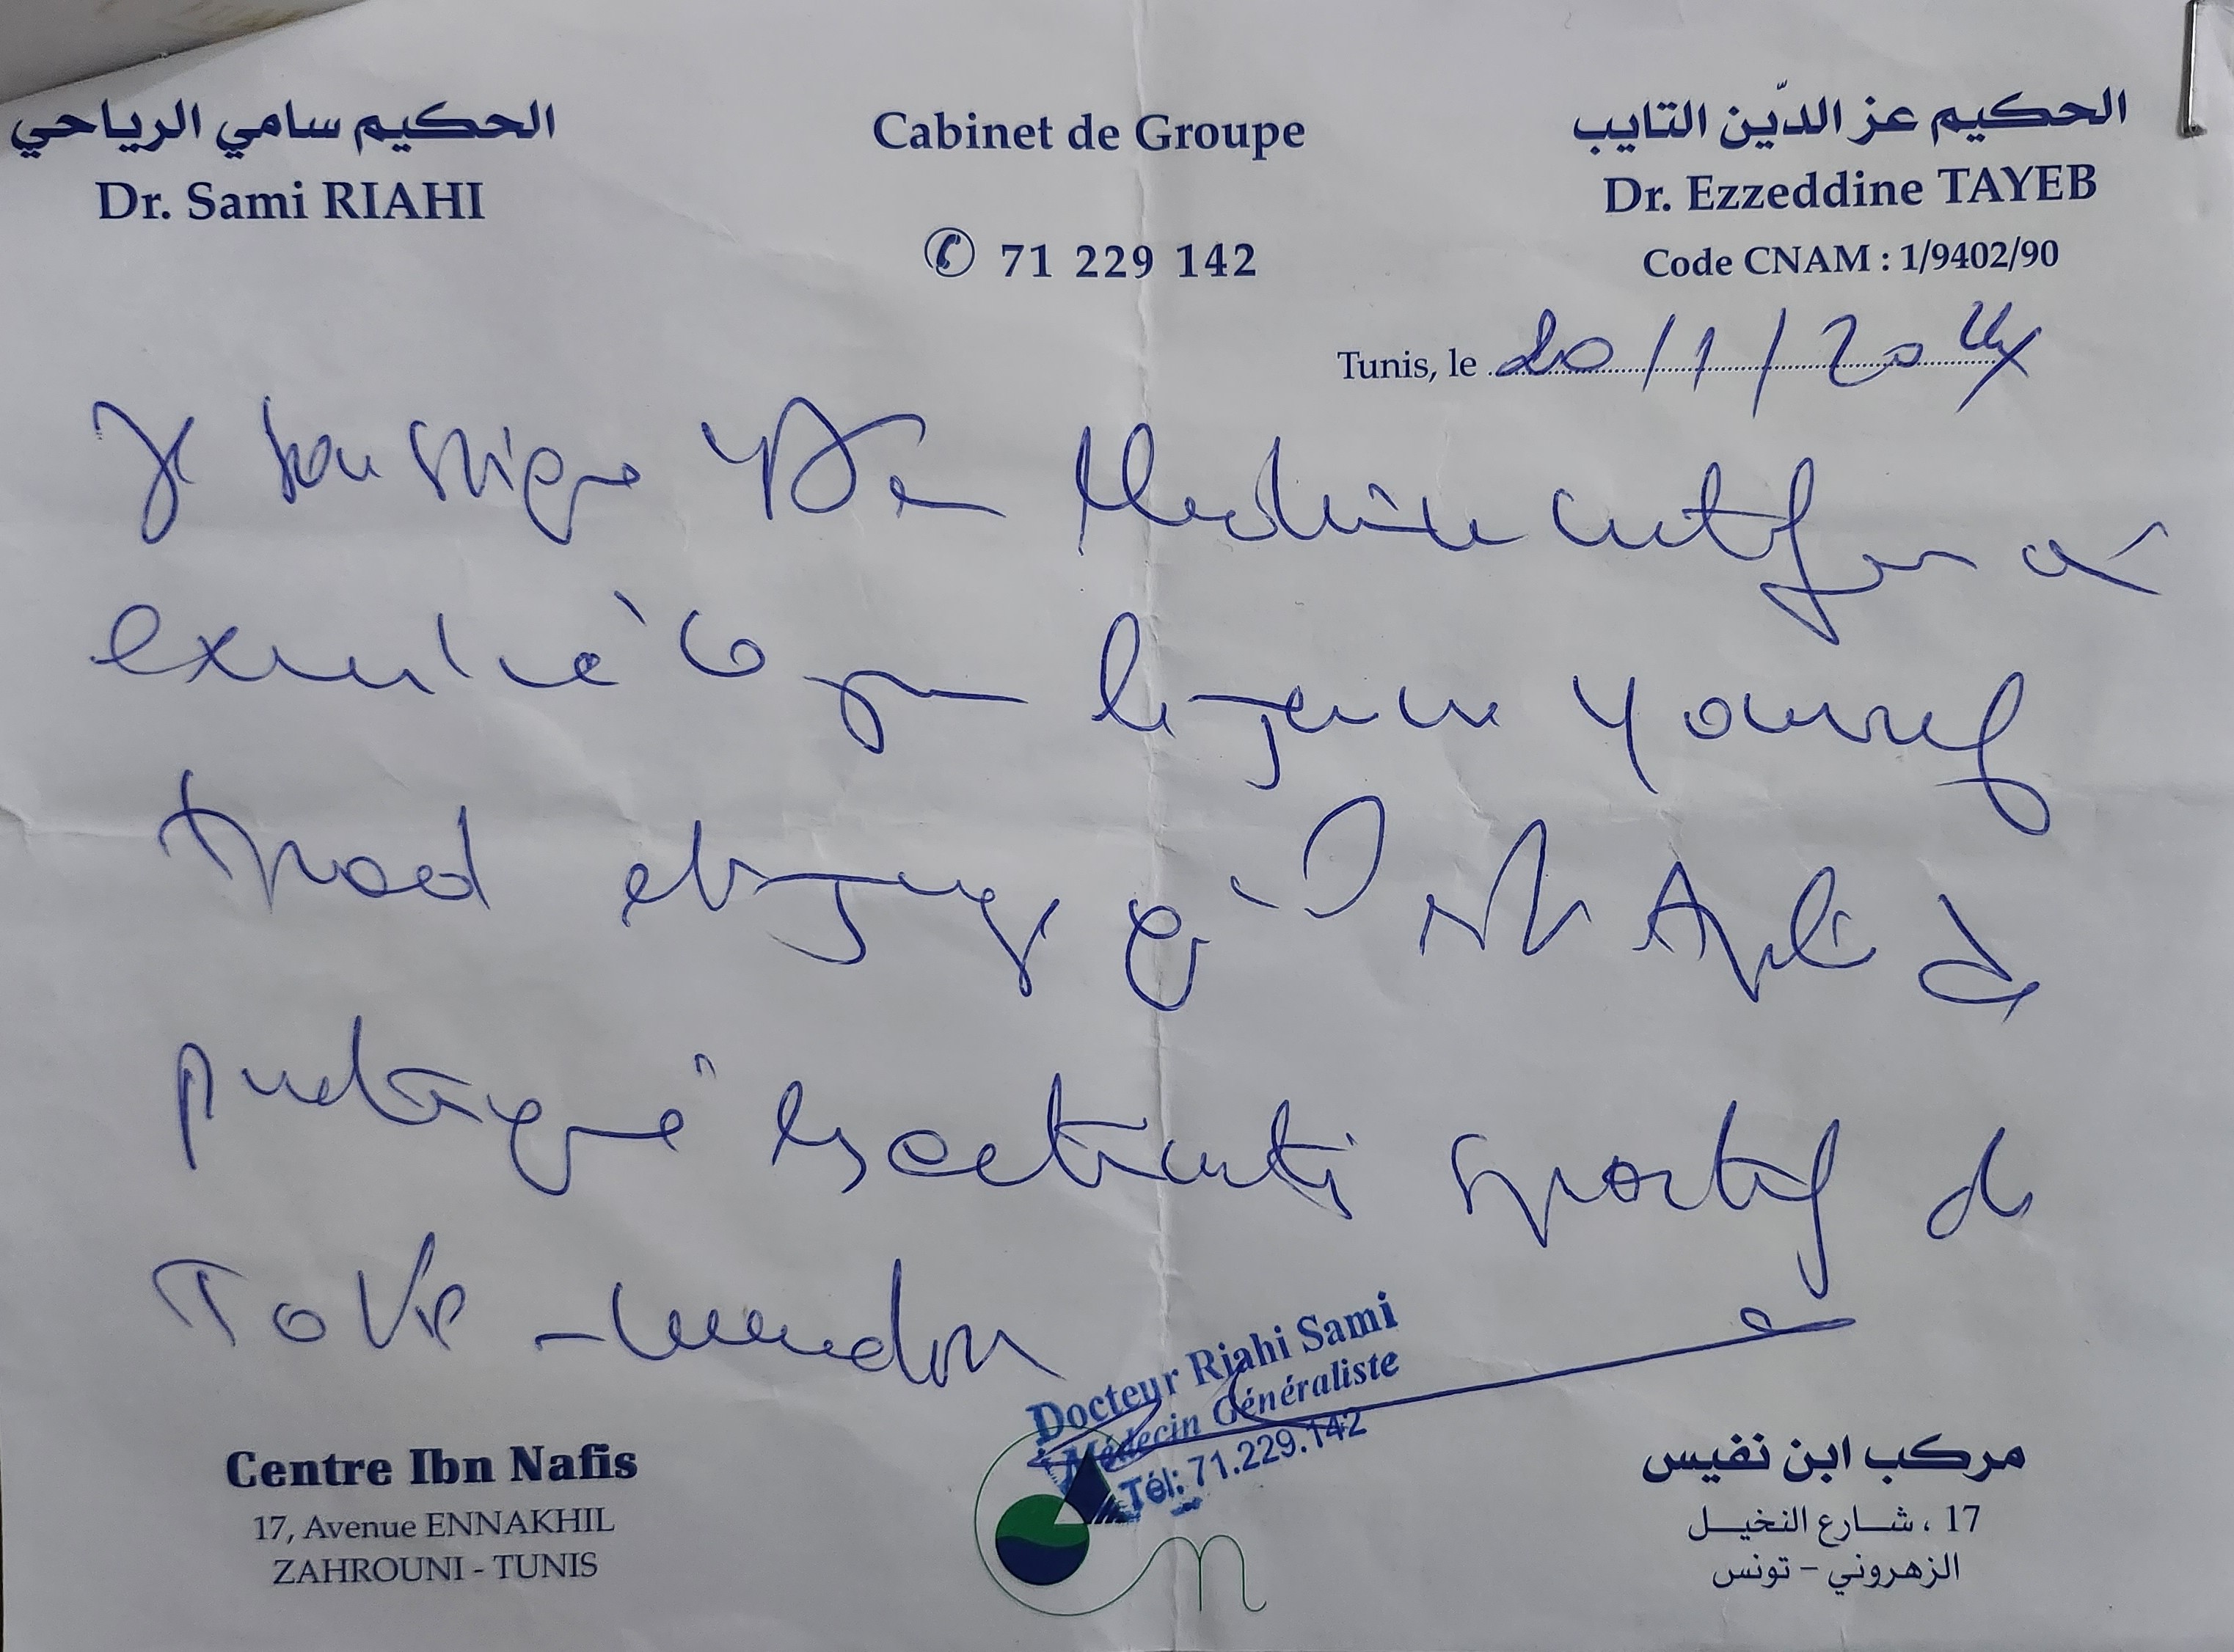 الحكيم سامي الرياحي
Dr. Sami RIAHI
Cabinet de Groupe
✆ 71 229 142
الحكيم عز الدّين التايب
Dr. Ezzeddine TAYEB
Code CNAM : 1/9402/90
Tunis, le 20/1/2024
Je soussigné Dr en Médecine certifie avoir
examiné ce jour le jeune Youssef
et juge qu'il est Apte à
pratiqué les activités sportif de
Docteur Riahi Sami
Médecin Généraliste
Tél: 71.229.142
Centre Ibn Nafis
17, Avenue ENNAKHIL
ZAHROUNI - TUNIS
مركب ابن نفيس
17 ، شارع النخيل
الزهروني - تونس